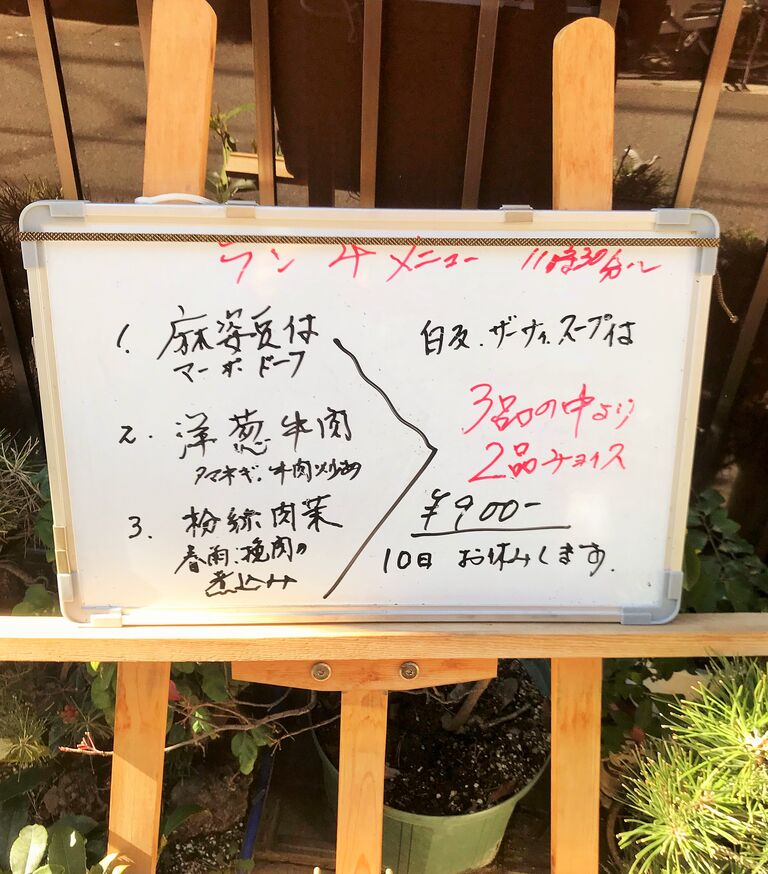 ランチメニュー 11時30分〜
1. 麻婆豆付
マーボードーフ
2. 洋葱牛肉
タマネギ、牛肉炒め
3. 粉絲肉菜
春雨、挽肉の
煮込み
白反、ザーサイ、スープは
3品の中より
2品チョイス
¥900-
10日 お休みします。